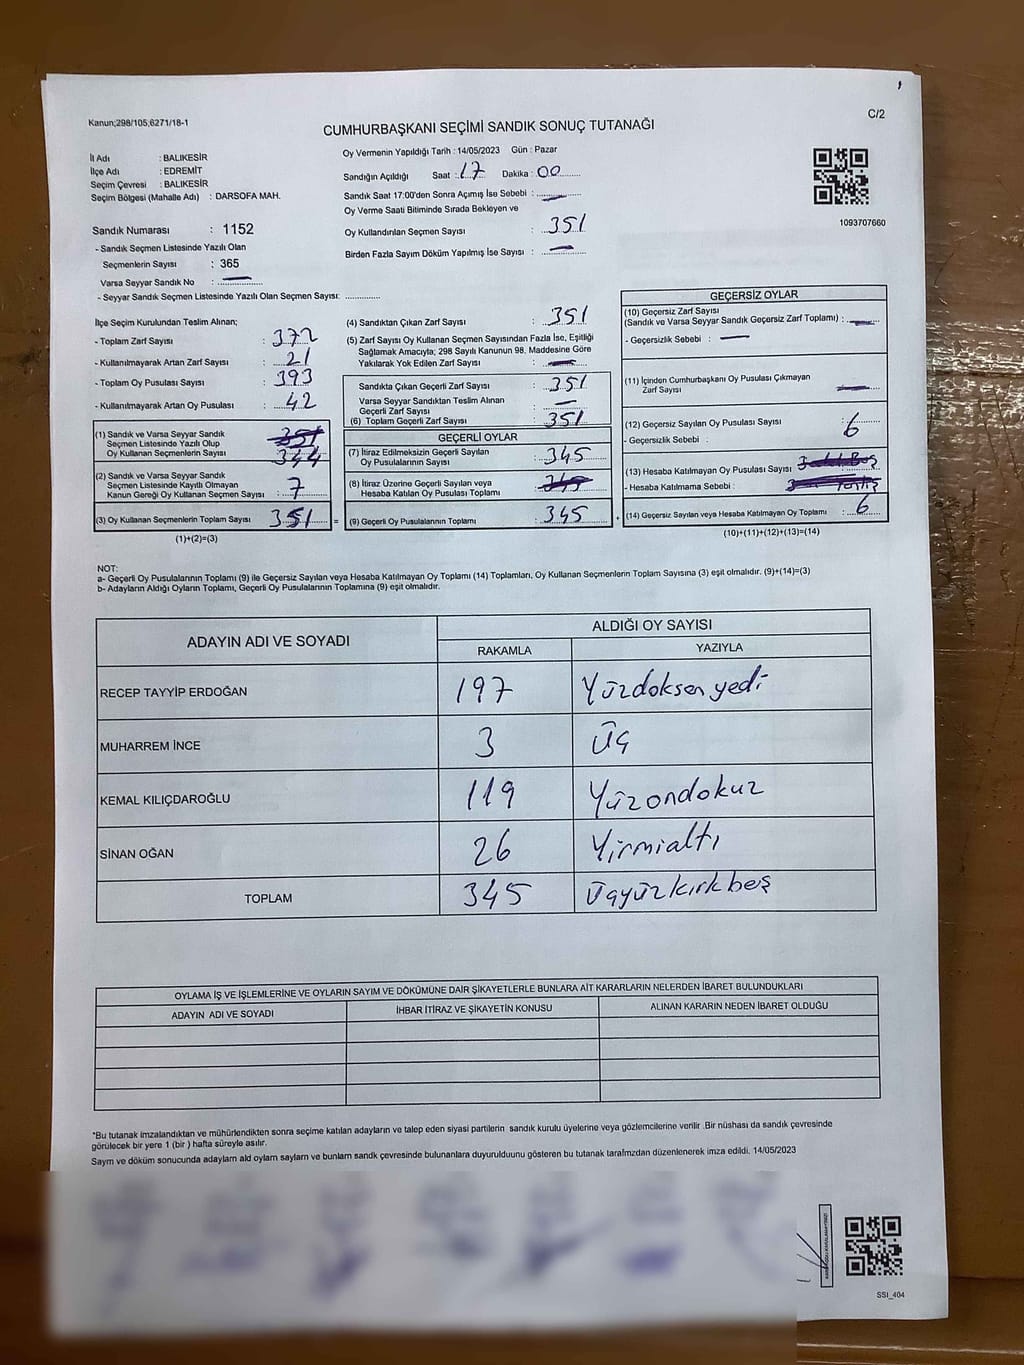 C/2
Kanun;298/105,6271/18-1
CUMHURBAŞKANI SEÇİMİ SANDIK SONUÇ TUTANAĞI
İl Adı : BALIKESİR
İlçe Adı : EDREMİT
Seçim Çevresi : BALIKESİR
Seçim Bölgesi (Mahalle Adı) : DARSOFA MAH.
Oy Vermenin Yapıldığı Tarih : 14/05/2023 Gün : Pazar
Sandığın Açıldığı Saat : 17 Dakika : 00
Sandık Saat 17:00'den Sonra Açımış İse Sebebi : —
Oy Verme Saati Bitiminde Sırada Bekleyen ve
Oy Kullandırılan Seçmen Sayısı : 351
Birden Fazla Sayım Döküm Yapılmış İse Sayısı : —
1093707660
Sandık Numarası : 1152
- Sandık Seçmen Listesinde Yazılı Olan
Seçmenlerin Sayısı : 365
Varsa Seyyar Sandık No : —
- Seyyar Sandık Seçmen Listesinde Yazılı Olan Seçmen Sayısı: ............
İlçe Seçim Kurulundan Teslim Alınan;
- Toplam Zarf Sayısı : 372
- Kullanılmayarak Artan Zarf Sayısı : 21
- Toplam Oy Pusulası Sayısı : 393
- Kullanılmayarak Artan Oy Pusulası : 42
(1) Sandık ve Varsa Seyyar Sandık
Seçmen Listesinde Yazılı Olup
Oy Kullanan Seçmenlerin Sayısı : 351 344
(2) Sandık ve Varsa Seyyar Sandık
Seçmen Listesinde Kayıtlı Olmayan
Kanun Gereği Oy Kullanan Seçmen Sayısı : 7
(3) Oy Kullanan Seçmenlerin Toplam Sayısı 351 =
(1)+(2)=(3)
(4) Sandıktan Çıkan Zarf Sayısı : 351
(5) Zarf Sayısı Oy Kullanan Seçmen Sayısından Fazla İse, Eşitliği
Sağlamak Amacıyla; 298 Sayılı Kanunun 98. Maddesine Göre
Yakılarak Yok Edilen Zarf Sayısı : —
Sandıkta Çıkan Geçerli Zarf Sayısı : 351
Varsa Seyyar Sandıktan Teslim Alınan
Geçerli Zarf Sayısı : —
(6) Toplam Geçerli Zarf Sayısı : 351
GEÇERLİ OYLAR
(7) İtiraz Edilmeksizin Geçerli Sayılan
Oy Pusulalarının Sayısı : 345
(8) İtiraz Üzerine Geçerli Sayılan veya
Hesaba Katılan Oy Pusulası Toplamı : 345
(9) Geçerli Oy Pusulalarının Toplamı : 345 +
GEÇERSİZ OYLAR
(10) Geçersiz Zarf Sayısı
(Sandık ve Varsa Seyyar Sandık Geçersiz Zarf Toplamı) : —
- Geçersizlik Sebebi : —
(11) İçinden Cumhurbaşkanı Oy Pusulası Çıkmayan
Zarf Sayısı —
(12) Geçersiz Sayılan Oy Pusulası Sayısı : 6
- Geçersizlik Sebebi :
(13) Hesaba Katılmayan Oy Pusulası Sayısı :
- Hesaba Katılmama Sebebi :
(14) Geçersiz Sayılan veya Hesaba Katılmayan Oy Toplamı : 6
(10)+(11)+(12)+(13)=(14)
NOT:
a- Geçerli Oy Pusulalarının Toplamı (9) ile Geçersiz Sayılan veya Hesaba Katılmayan Oy Toplamı (14) Toplamları, Oy Kullanan Seçmenlerin Toplam Sayısına (3) eşit olmalıdır. (9)+(14)=(3)
b- Adayların Aldığı Oyların Toplamı, Geçerli Oy Pusulalarının Toplamına (9) eşit olmalıdır.
ADAYIN ADI VE SOYADI ALDIĞI OY SAYISI
RAKAMLA YAZIYLA
RECEP TAYYİP ERDOĞAN 197 Yüzdoksanyedi
MUHARREM İNCE 3 Üç
KEMAL KILIÇDAROĞLU 119 Yüzondokuz
SİNAN OĞAN 26 Yirmialtı
TOPLAM 345 Üçyüzkırkbeş
OYLAMA İŞ VE İŞLEMLERİNE VE OYLARIN SAYIM VE DÖKÜMÜNE DAİR ŞİKAYETLERLE BUNLARA AİT KARARLARIN NELERDEN İBARET BULUNDUKLARI
ADAYIN ADI VE SOYADI İHBAR İTİRAZ VE ŞİKAYETİN KONUSU ALINAN KARARIN NEDEN İBARET OLDUĞU
*Bu tutanak imzalandıktan ve mühürlendikten sonra seçime katılan adayların ve talep eden siyasi partilerin sandık kurulu üyelerine veya gözlemcilerine verilir .Bir nüshası da sandık çevresinde
görülecek bir yere 1 (bir ) hafta süreyle asılır.
Saym ve döküm sonucunda adaylarn ald oylarn saylarn ve bunlarn sandk çevresinde bulunanlara duyurulduunu gösteren bu tutanak tarafmzdan düzenlenerek imza edildi. 14/05/2023
SSI_404